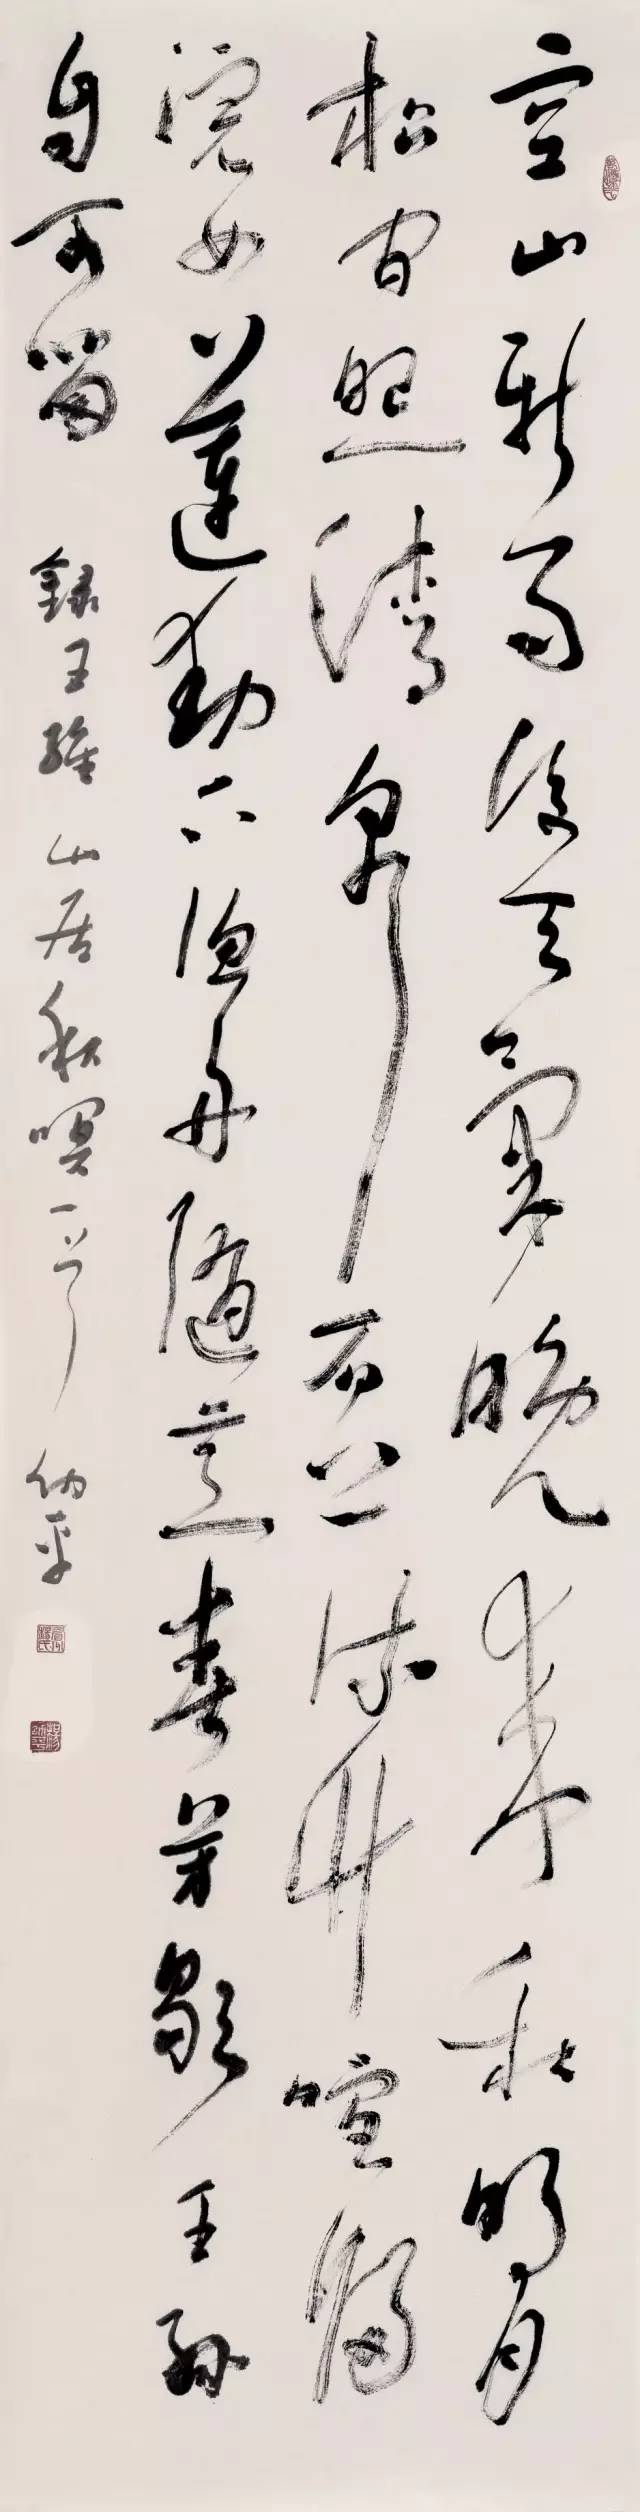 空山新雨後天氣晚來秋明月
松间照清泉石上流竹喧歸
浣女蓮動下漁舟隨意春芳歇王孫
自可留
錄王維山居秋暝一首 幼平